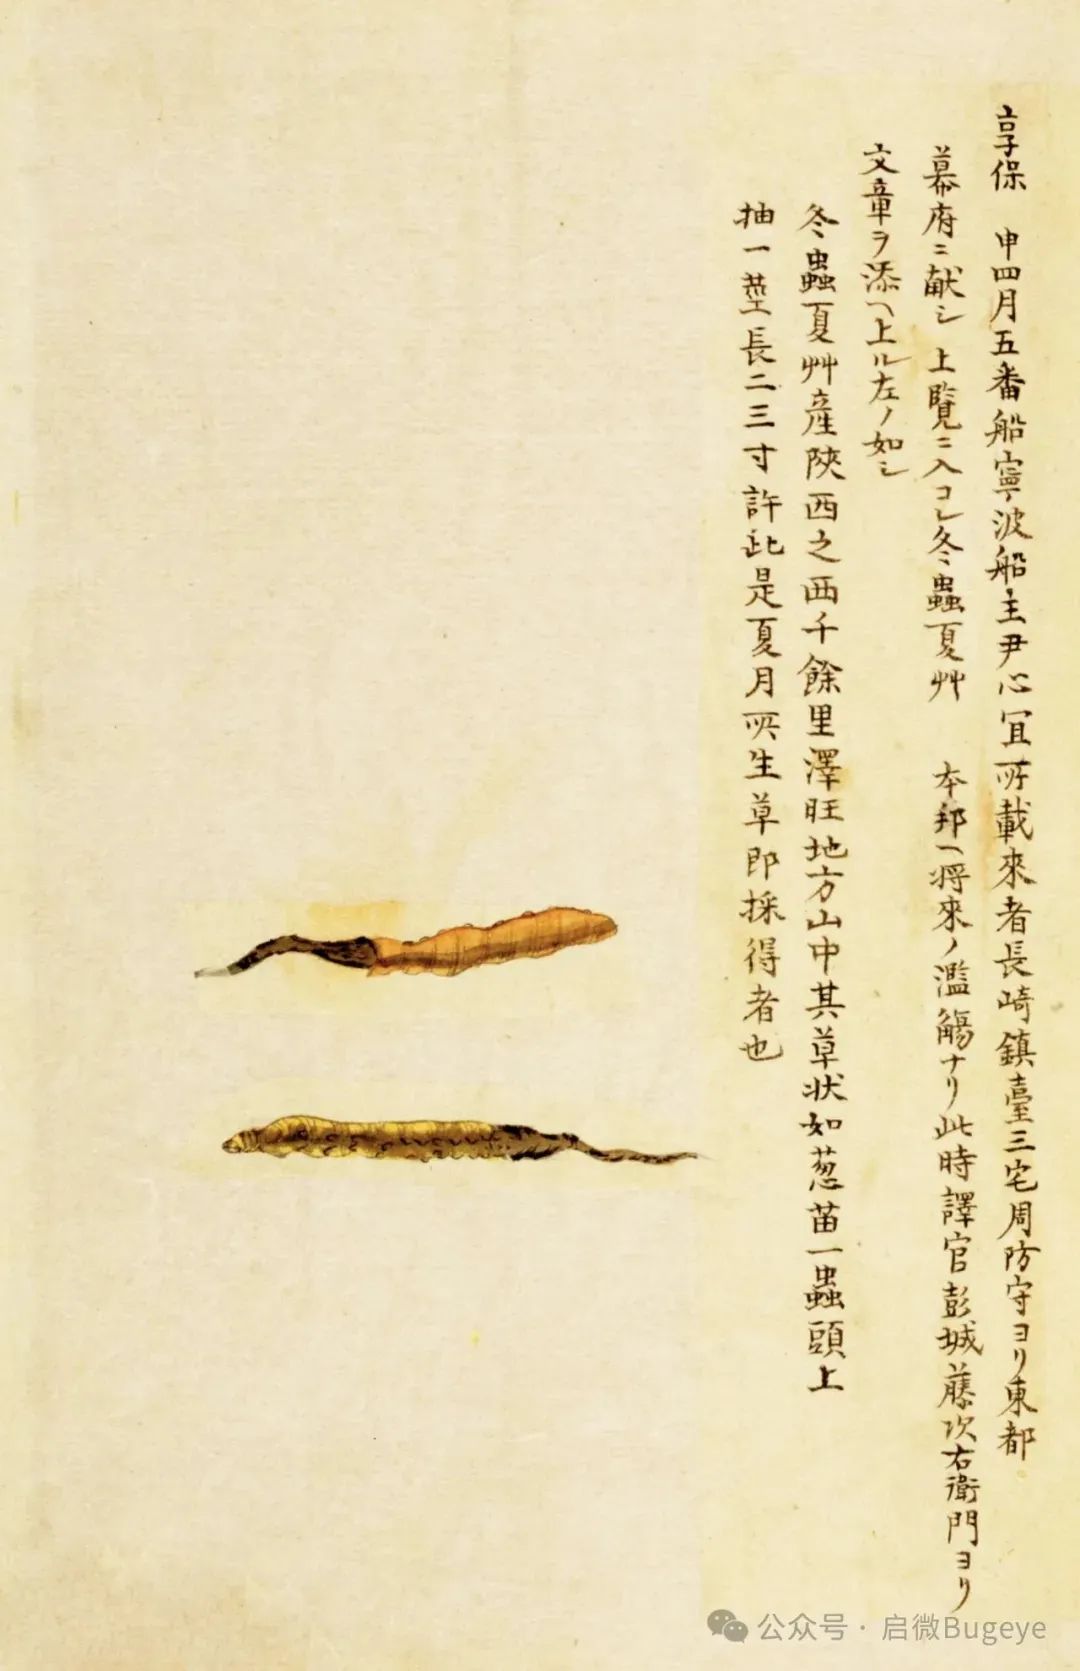 享保　申四月五番船寧波船主尹心宜所載來者長崎鎮臺三宅周防守ヨリ東都
幕府ニ献シ　上覧ニ入コレ冬蟲夏艸　本邦ヘ将來ノ濫觴ナリ此時譯官彭城藤次右衛門ヨリ
文章ヲ添ヘ上ル左ノ如シ
冬蟲夏艸産陝西之西千餘里澤旺地方山中其草状如葱苗一蟲頭上
抽一莖長二三寸許此是夏月所生草即採得者也
公众号·启微Bugeye